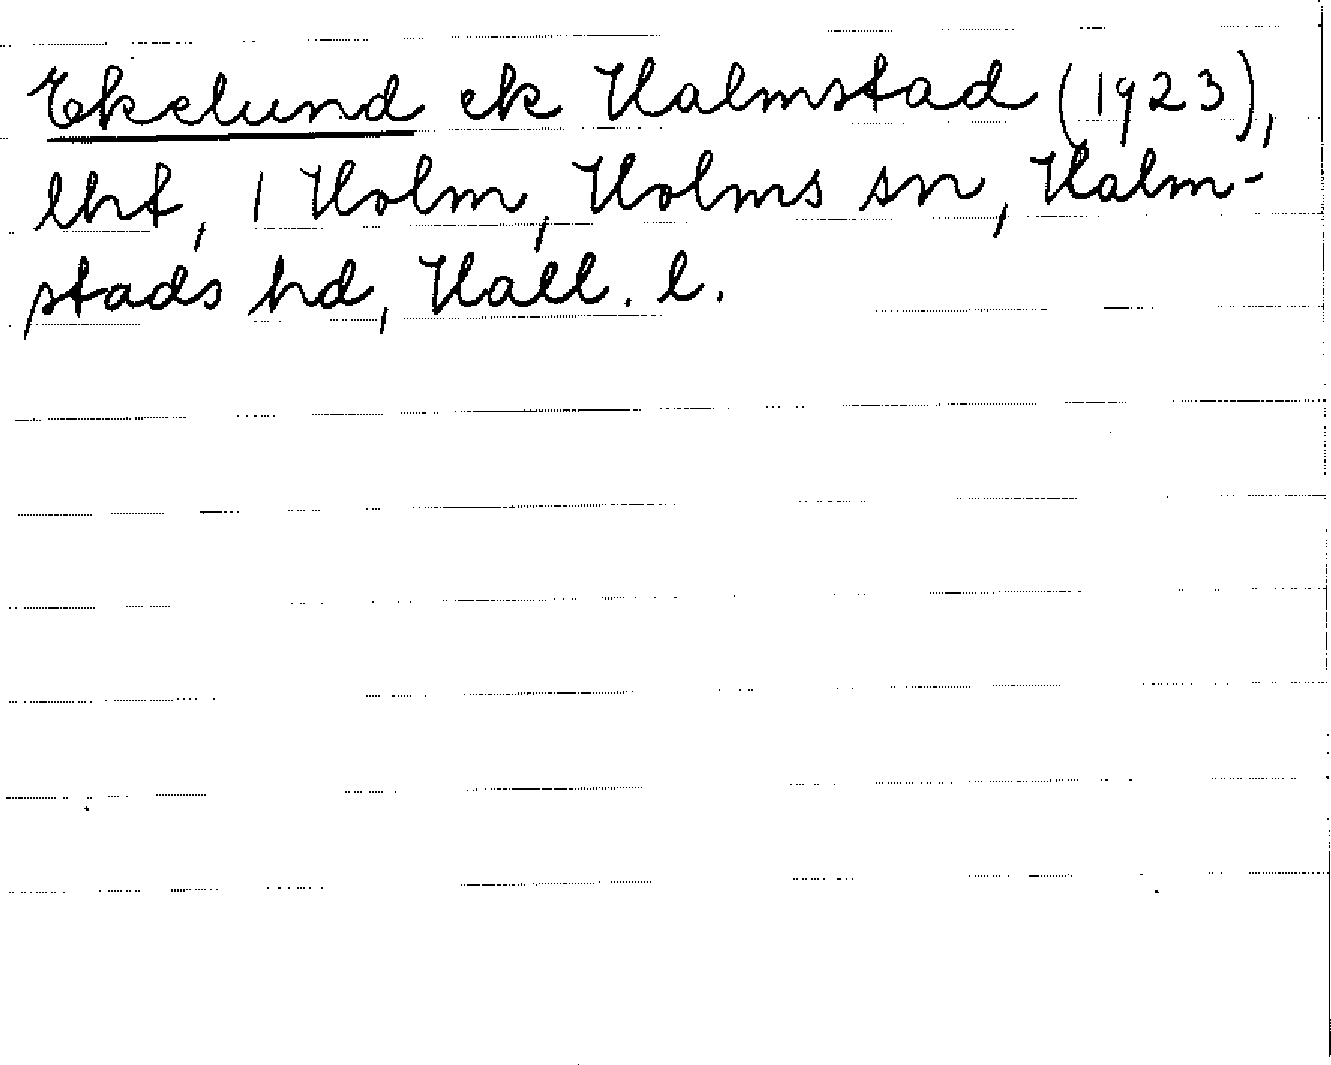 Ekelund ek Halmstad (1923),
lht, 1 Holm, Holms sn, Halm-
stads hd, Hall. l.